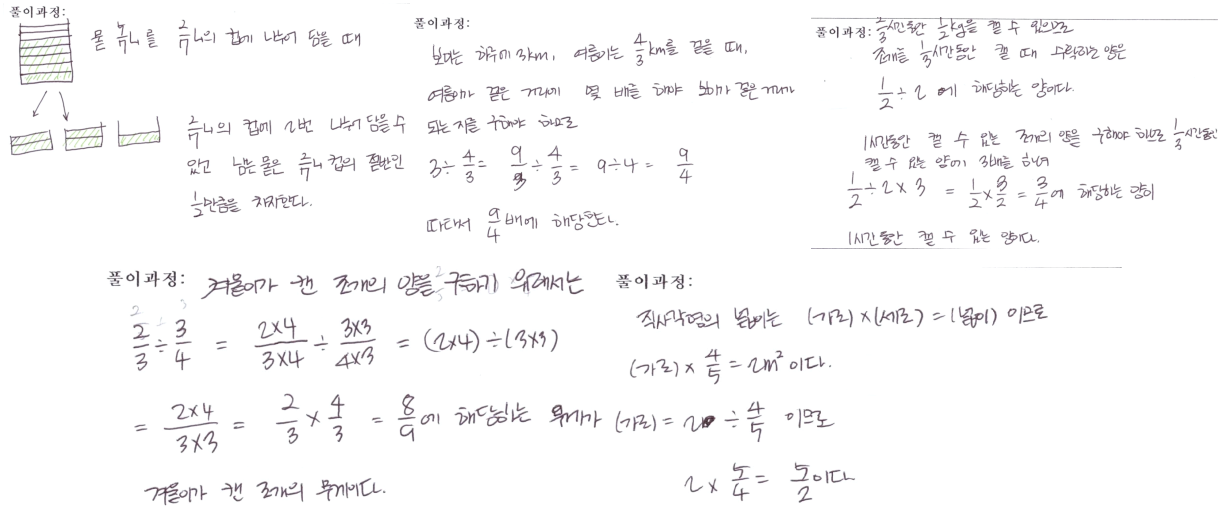 풀이과정:
물 5/7L를 2/7L의 컵에 나누어 담을 때
2/7L의 컵에 2번 나누어 담을 수
있고 남는 물은 2/7L 컵의 절반인
1/2만큼을 차지한다.
풀이과정:
보다는 하루에 3km, 여름이는 4/3km를 걸을 때,
여름이가 걸은 거리에 몇 배를 해야 보다가 걸은 거리가
되는 지를 구해야 하므로
3÷4/3= 9/3÷4/3= 9÷4= 9/4
따라서 9/4배에 해당한다.
풀이과정: 2/3시간동안 1/2kg을 캘 수 있으므로
조개를 1/3시간동안 캘 때 수확하는 양은
1/2÷2 에 해당하는 양이다.
1시간동안 캘 수 있는 조개의 양을 구해야 하므로 1/3시간동안
캘 수 있는 양에 3배를 하여
1/2÷2×3 = 1/2×3/2=3/4에 해당하는 양이
1시간동안 캘 수 있는 양이다.
풀이과정: 겨울이가 캔 조개의 양을 구하기 위해서는
2/3÷3/4 = 2×4/3×4÷3×3/4×3 = (2×4)÷(3×3)
= 2×4/3×3 = 2/3×4/3 = 8/9에 해당하는 무게가
겨울이가 캔 조개의 무게이다.
풀이과정:
직사각형의 넓이는 (가로)×(세로)=(넓이) 이므로
(가로)×4/5=2m²이다.
(가로)=2÷4/5 이므로
2×5/4=5/2이다